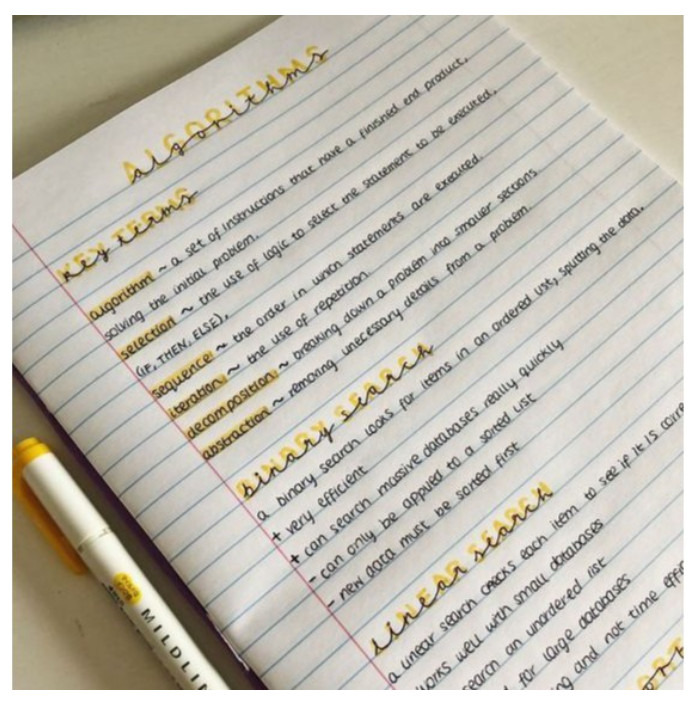 ALGORITHMS
algorithms
KEY TERMS
key terms
algorithm ~ a set of instructions that have a finished end product,
solving the initial problem.
selection ~ the use of logic to select the statement to be executed,
(IF, THEN, ELSE),
sequence ~ the order in which statements are executed.
iteration ~ the use of repetition.
decomposition ~ breaking down a problem into smaller sections
abstraction ~ removing unecessary details from a problem.
BINARY SEARCH
binary search
a binary search looks for items in an ordered list, splitting the data.
+ very efficient
+ can search massive databases really quickly
- can only be applied to a sorted list
- new data must be sorted first
LINEAR SEARCH
linear search
a linear search checks each item to see if it is corre
works well with small databases
search an unordered list
for large databases
and not time
MILDLIN